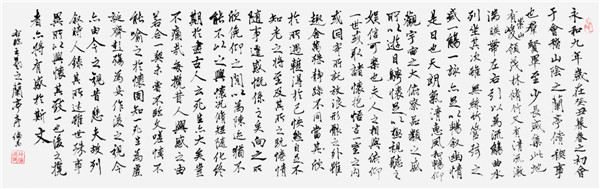 永和九年歲在癸丑暮春之初會
于會稽山陰之蘭亭修禊事
也群賢畢至少長咸集此地
有崇山峻領茂林修竹又有清流激
湍映帶左右引以為流觴曲水
列坐其次雖無絲竹管弦之
盛一觴一詠亦足以暢敘幽情
是日也天朗氣清惠風和暢仰
觀宇宙之大俯察品類之盛
所以遊目騁懷足以極視聽之
娛信可樂也夫人之相與俯仰
一世或取諸懷抱悟言一室之內
或因寄所託放浪形骸之外雖
趣舍萬殊靜躁不同當其欣
於所遇輒得於己快然自足不
知老之將至及其所之既倦情
隨事遷感慨係之矣向之所
欣俛仰之間以為陳迹猶不
能不以之興懷況脩短隨化終
期於盡古人云死生亦大矣豈
不痛哉每攬昔人興感之由
若合一契未嘗不臨文嗟悼不
能喻之於懷固知一死生為虛
誕齊彭殤為妄作後之視今
亦由今之視昔悲夫故列
敘時人錄其所述雖世殊事
異所以興懷其致一也後之攬
者亦將有感於斯文
右臨王羲之蘭亭序